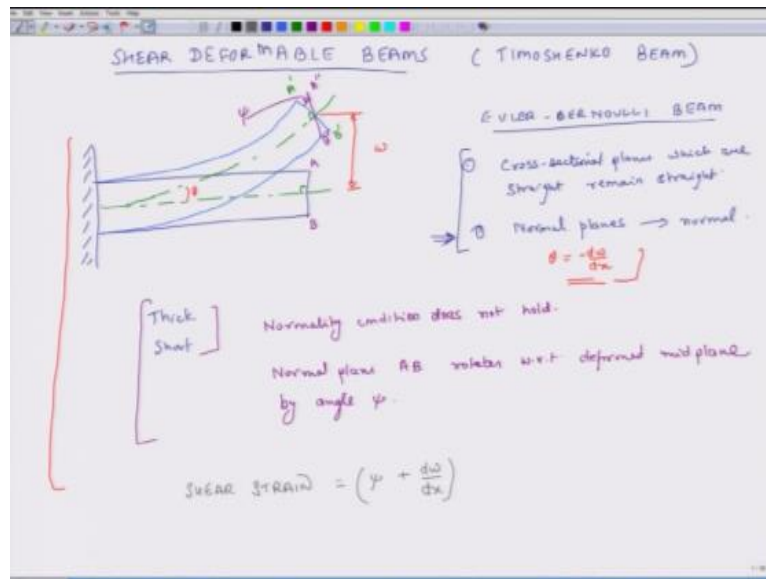 SHEAR DEFORMABLE BEAMS ( TIMOSHENKO BEAM)
EULER-BERNOULLI BEAM
Cross-sectional planes which are
straight remain straight.
Normal planes → normal.
θ = -dw/dx
A' A"
ψ
B'
w
θ
A
B
Thick
Short
Normality condition does not hold.
Normal plane AB rotates w.r.t deformed midplane
by angle ψ.
SHEAR STRAIN = (ψ + dw/dx)